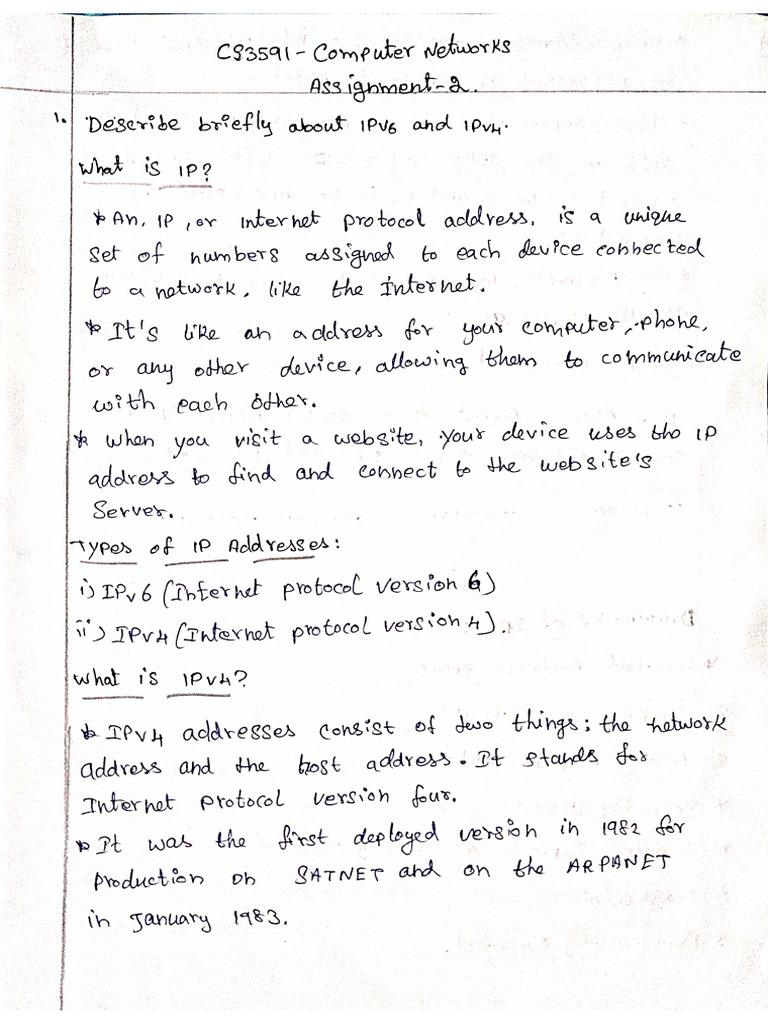 CS3591 - Computer Networks
Assignment-2.
1. Describe briefly about IPv6 and IPv4.
What is IP?
* An, IP, or Internet protocol address, is a unique
set of numbers assigned to each device connected
to a network, like the Internet.
* It's like an address for your computer, phone,
or any other device, allowing them to communicate
with each other.
* When you visit a website, your device uses the IP
address to find and connect to the website's
Server.
Types of IP Addresses:
i) IPv6 (Internet protocol version 6)
ii) IPv4 (Internet protocol version 4).
What is IPv4?
* IPv4 addresses consist of two things: the network
address and the host address. It stands for
Internet Protocol version four.
* It was the first deployed version in 1982 for
production on SATNET and on the ARPANET
in January 1983.